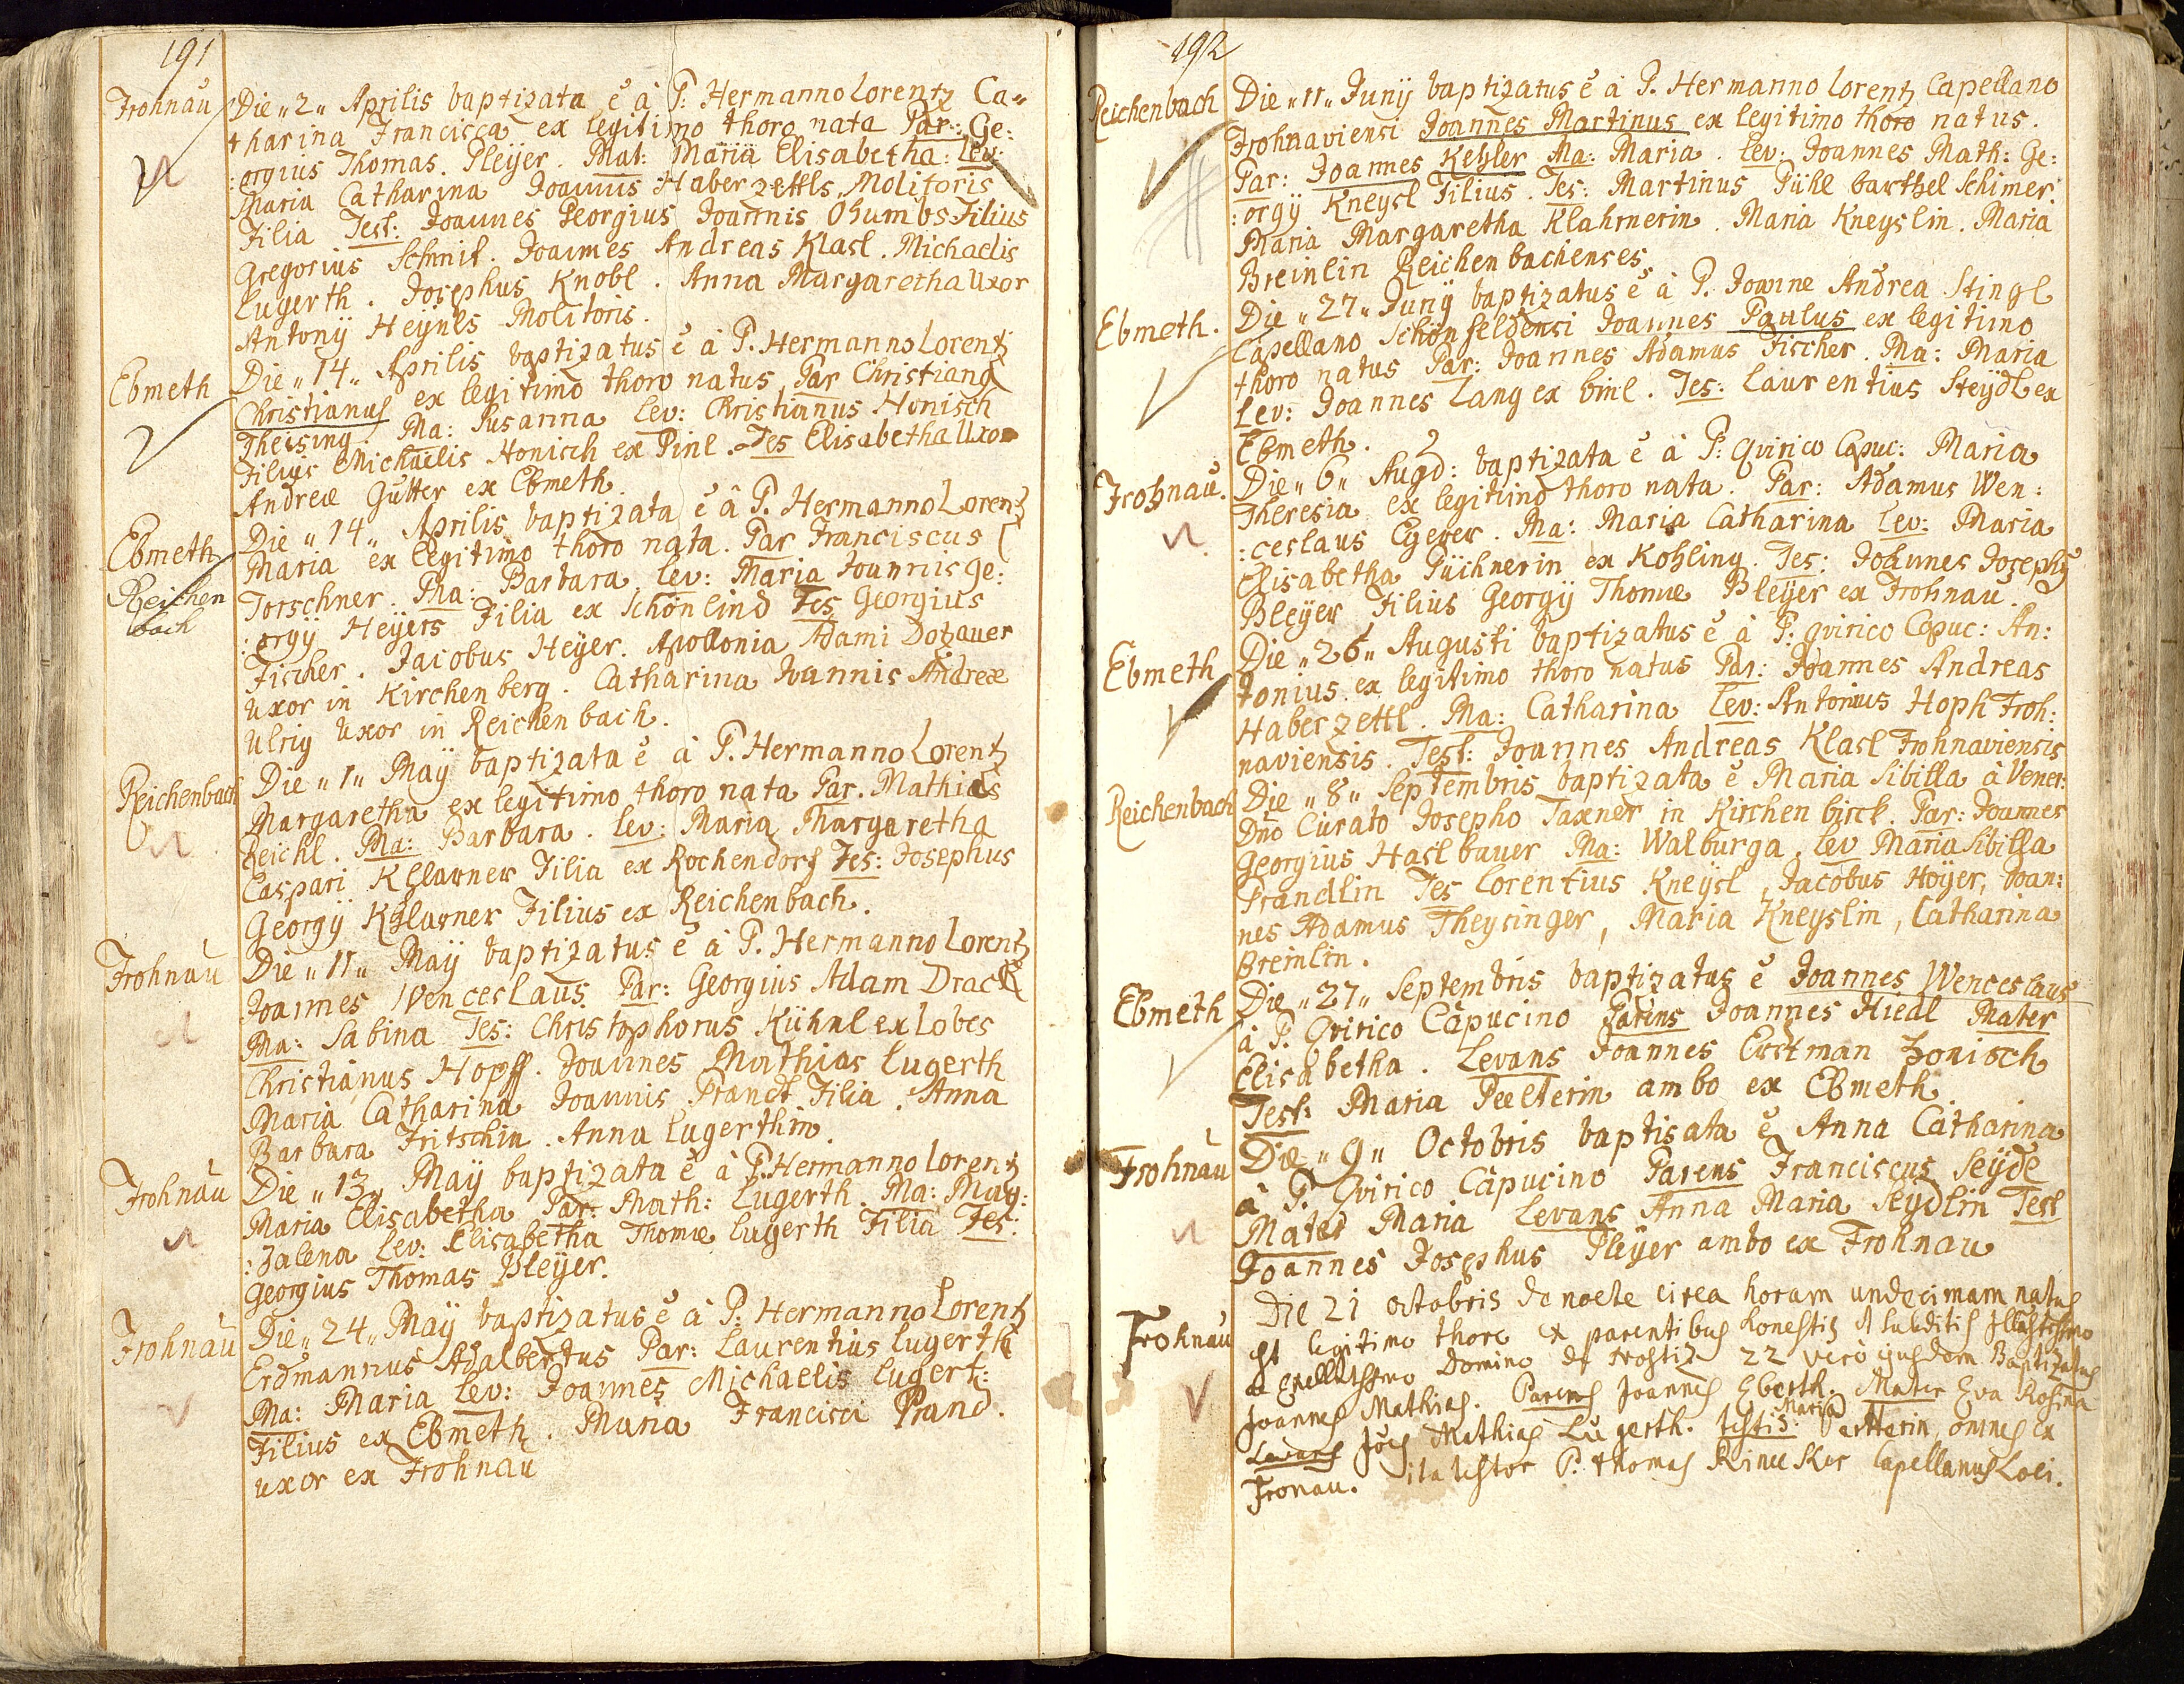 191
Frohnau
Die „2„ Aprilis baptizata ē à P: Hermanno Lorentz Ca„
tharina Francisca ex legitimo thoro nata Par: Ge:
:orgius Thomas Pleÿer. Mat: Maria Elisabetha: Lev:
Maria Catharina Joannis Haberzettls Molitoris
Filia Test: Joannes Georgius Joannis Ohumbs Filius
Gregorius Schmit. Joannes Andreas Klasl. Michaelis
Lugerth. Josephus Knobl. Anna Margaretha Uxor
Antonÿ Heÿnls Molitoris.
Ebmeth
Die „14„ Aprilis baptizatus ē à P. Hermanno Lorentz
Christianus ex legitimo thoro natus Par Christiang
Theising. Ma: Susanna Lev: Christianus Honisch
Filius Michaelis Honisch ex Pinl. Tes Elisabetha Uxor
Andreæ Gutter ex Ebmeth.
Ebmeth
Reichen
bach
Die „14„ Aprilis baptizata ē â P. Hermanno Lorentz
Maria ex legitimo thoro nata. Par Franciscus
Torschner. Ma: Barbara Lev: Maria Joannis Ge:
:orgÿ Heÿers Filia ex Schönlind Tes Georgius
Fischer. Jacobus Heÿer. Apollonia Adami Dotzauer
uxor in Kirchenberg. Catharina Joannis Andreæ
Ulrig Uxor in Reichenbach.
Reichenbach
Die „1„ Maÿ baptizata ē à P. Hermanno Lorentz
Margaretha ex legitimo thoro nata Par. Mathias
Reichl. Ma: Barbara. Lev: Maria Margaretha
Caspari Khlarner Filia ex Rochendorf Tes: Josephus
Georgÿ Khlarner Filius ex Reichenbach.
Frohnau
Die „11„ Maÿ baptizatus ē à P. Hermanno Lorentz
Joannes Wenceslaus Par: Georgius Adam Drack
Ma: Sabina Tes: Christophorus Kühnl ex Lobes
Christianus Hopff. Joannes Mathias Lugerth
Maria Catharina Joannis Prandt Filia. Anna
Barbara Fritschin. Anna Lugerthin.
Frohnau
Die „13„ Maÿ baptizata ē à P. Hermanno Lorentz
Maria Elisabetha Par: Math: Lugerth. Ma: Mag:
:Dalena Lev: Elisabetha Thomæ Lugerth Filia Tes:
Georgius Thomas Bleÿer.
Frohnau
Die „24„ Maÿ baptizatus ē à P: Hermanno Lorentz
Erdmannus Adalbertus Par: Laurentius Lugerth
Ma: Maria Lev: Joannes Michaelis Lugert:
Filius ex Ebmeth. Maria Francisci Prand.
uxor ex Frohnau
192
Reichenbach
Die „11„ Junÿ baptizatus ē à P. Hermanno Lorentz Capellano
Frohnaviensi Joannes Martinus ex legitimo thoro natus.
Par: Joannes Kehler Ma: Maria. Lev: Joannes Math: Ge:
:orgÿ Kneysl Filius. Tes: Martinus Pühl barthel Schimer.
Maria Margaretha Klahrnerin. Maria Kneyslin. Maria
Breinlin Reichenbachenses
Ebmeth.
Die „27„ Junÿ baptizatus ē à P. Joanne Andrea Stingl
Capellano Schönfeldensi Joannes Paulus ex legitimo
thoro natus Par: Joannes Adamus Fischer. Ma: Maria
Lev: Joannes Lang ex binl. Tes: Laurentius Steÿdl ex
Ebmeth.
Frohnau.
Die „6„ Augd: baptizata ē à P: Qvirico Capuc: Maria
Theresia ex legitimo thoro nata. Par: Adamus Wen:
:ceslaus Egerer. Ma: Maria Catharina Lev: Maria
Elisabetha Püchnerin ex Kohling. Tes: Joannes Josephus
Bleÿer Filius Georgÿ Thomæ Bleÿer ex Frohnau.
Ebmeth
Die „26„ Augusti baptizatus ē à P. Qvirico Capuc: An:
tonius ex legitimo thoro natus Par: Joannes Andreas
Haberzettl. Ma: Catharina Lev: Antonius Hoph Froh:
naviensis. Test: Joannes Andreas Klasl Frohnaviensis
Reichenbach
Die „8„ Septembris baptizata ē Maria Sibilla à Vener:
Dno Curato Josepho Taxner in Kirchenbirck. Par: Joannes
Georgius Haslbauer Ma: Walburga. Lev Maria Sibilla
Prandlin Tes Lorentius Kneÿsl, Jacobus Hoÿer, Joan:
nes Adamus Theysinger, Maria Kneyslin, Catharina
Breinlin.
Ebmeth
Die „27„ Septembris baptizatus ē Joannes Wenceslaus
à P. Qvirico Capucino Parens Joannes Hiedl Mater
Elisabetha. Levans Joannes Erdtman Honisch
Test: Maria Peelterin ambo ex Ebmeth.
Frohnau
Die „9„ Octobris baptisata ē Anna Catharina
à P. Qvirico Capucino Parens Franciscus Seÿdl
Mater Maria Levans Anna Maria Seÿdlin Test
Joannes Josephus Pleÿer ambo ex Frohnau
Frohnau
Die 21 octobris de nocte circa horam undecimam natus
est legitimo thoro ex parentibus honestis et subditis Illustrissimo
ac Excellentissimo Domino de Trostiz 22 verò ejusdem Baptizatus
Joannes Mathias. Parens Joannes Eberth. Mater Eva Rosina
Levans Jões Mathias Lugerth. testis: Maria omnes ex
Fronau. ita testor P. Thomas Capellanus Loci.